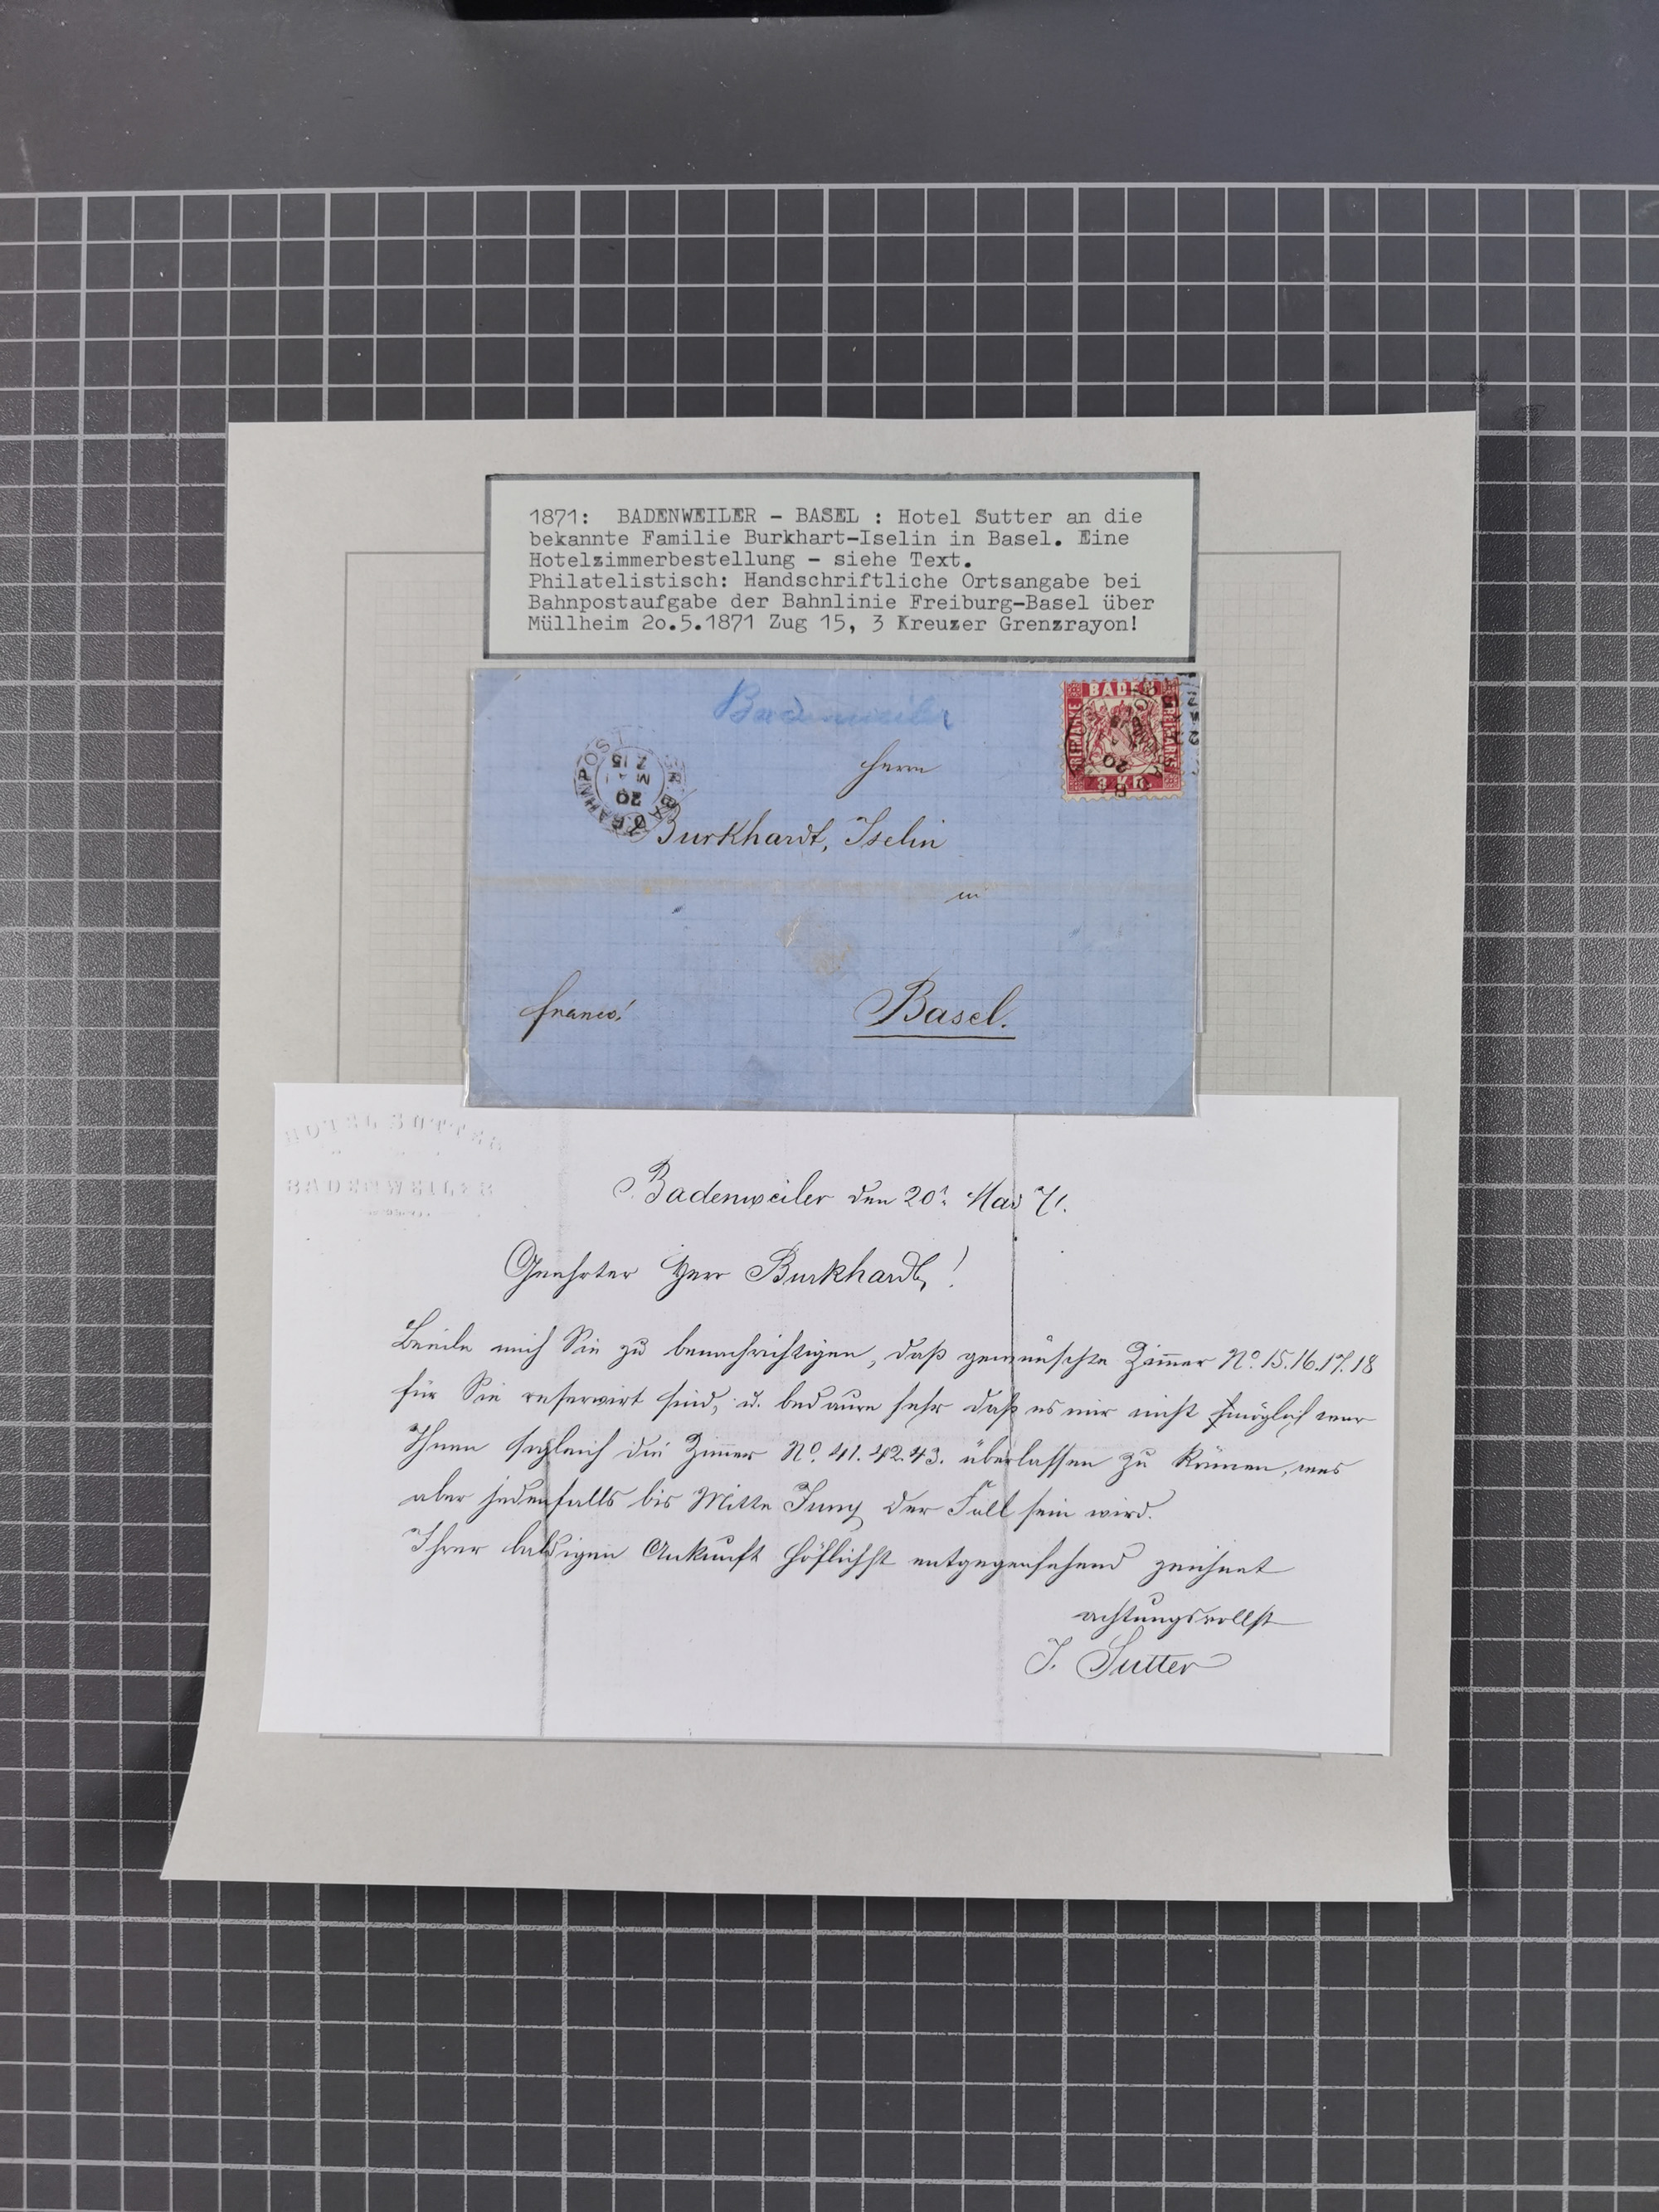 1871:  BADENWEILER - BASEL : Hotel Sutter an die
bekannte Familie Burkhart-Iselin in Basel. Eine
Hotelzimmerbestellung - siehe Text.
Philatelistisch: Handschriftliche Ortsangabe bei
Bahnpostaufgabe der Bahnlinie Freiburg-Basel über
Müllheim 2o.5.1871 Zug 15, 3 Kreuzer Grenzrayon!
Badenweiler
BADEN
FREIMARKE
3 KR.
BAHNPOST
Z 15
20
Herrn
Burkhardt, Iselin
in
franco!
Basel.
HOTEL SUTTER
BADENWEILER
Badenweiler den 20t. Mai 71.
Geehrter Herr Burkhardt,!
Beeile mich Sie zu benachrichtigen, daß gewünschte Zimmer No. 15.16.17.18
für Sie reservirt sind, u. bedaure sehr daß es mir nicht möglich war
Ihnen sogleich die Zimmer No. 41.42.43. überlassen zu können, was
aber jedenfalls bis Mitte Juny der Fall sein wird.
Ihrer baldigen Ankunft höflichst entgegensehend zeichnet
achtungsvollst
J. Sutter